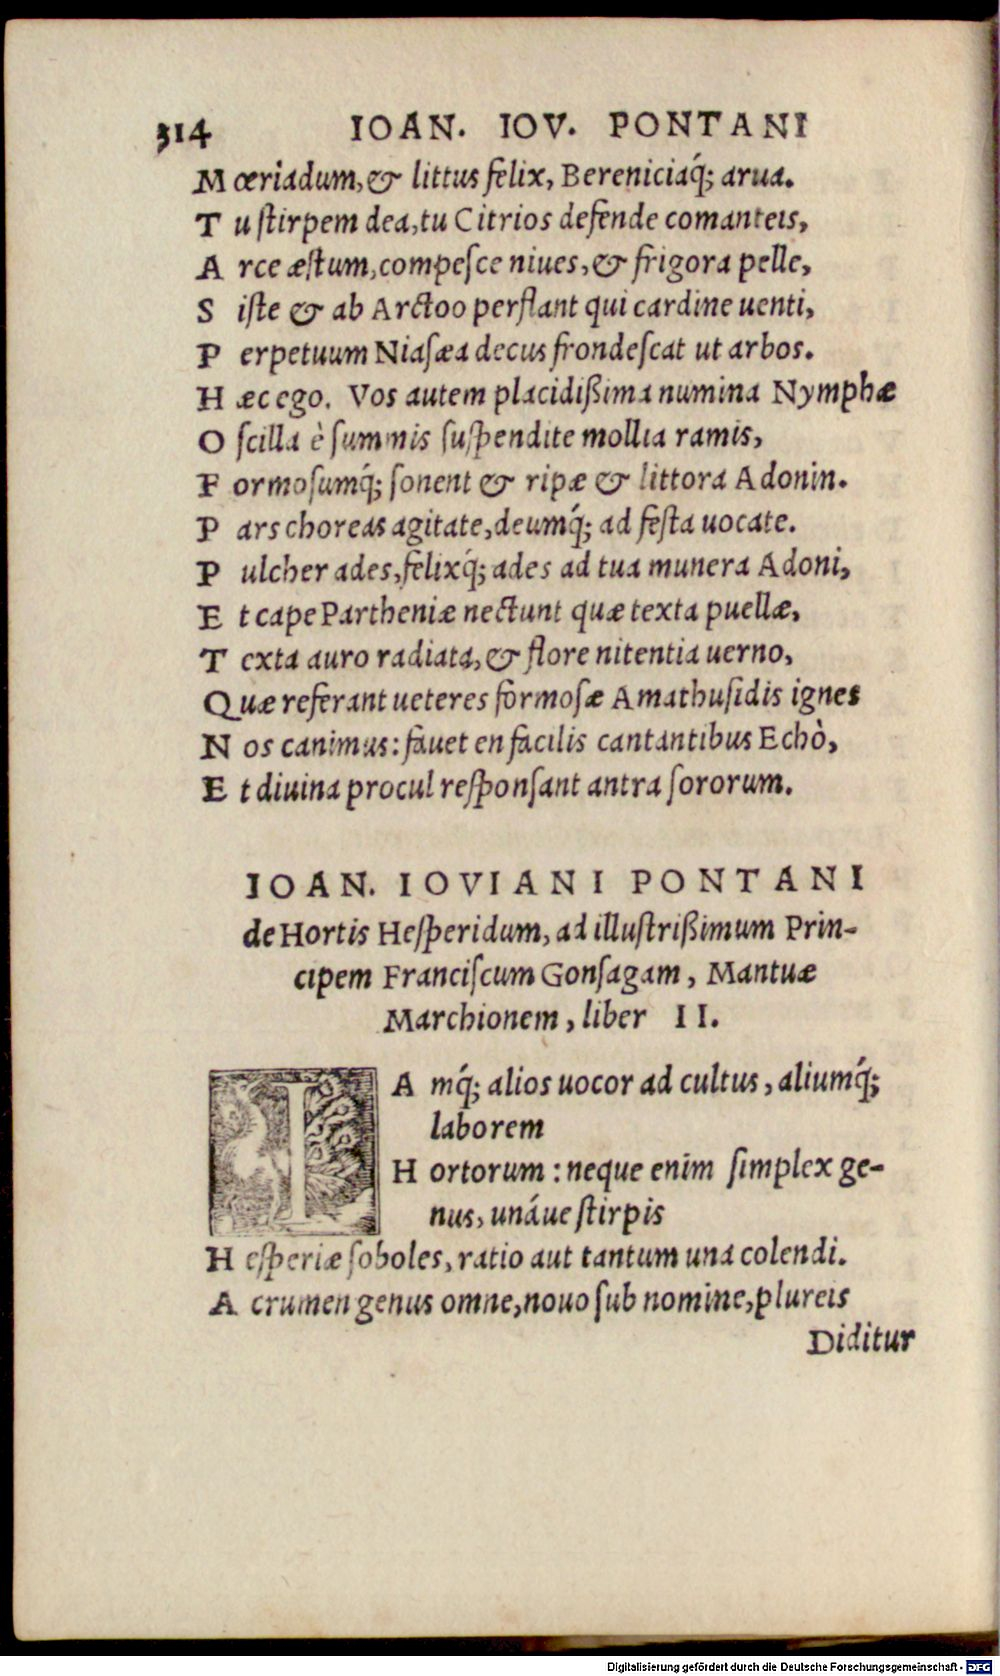 314 IOAN. IOV. PONTANI
Mœriadum, & littus felix, Bereniciaq́; arua.
Tu ſtirpem dea, tu Citrios defende comanteis,
Arce æſtum, compeſce niues, & frigora pelle,
Siſte & ab Arctoo perflant qui cardine uenti,
Perpetuum Niaſæa decus frondeſcat ut arbos.
Hæc ego. Vos autem placidißima numina Nymphæ
Oſcilla è ſummis ſuſpendite mollia ramis,
Formoſumq́; ſonent & ripæ & littora Adonin.
Pars choreas agitate, deumq́; ad feſta uocate.
Pulcher ades, felixq́; ades ad tua munera Adoni,
Et cape Partheniæ nectunt quæ texta puellæ,
Texta auro radiata, & flore nitentia uerno,
Quæ referant ueteres formoſæ Amathuſidis ignes
Nos canimus: fauet en facilis cantantibus Echò,
Et diuina procul reſponſant antra ſororum.
IOAN. IOVIANI PONTANI
de Hortis Heſperidum, ad illuſtrißimum Prin-
cipem Franciſcum Gonſagam, Mantuæ
Marchionem, liber II.
IAmq́; alios uocor ad cultus, aliumq́;
laborem
Hortorum: neque enim ſimplex ge-
nus, unáue ſtirpis
Heſperiæ ſoboles, ratio aut tantum una colendi.
Acrumen genus omne, nouo ſub nomine, plureis
Diditur
Digitalisierung gefördert durch die Deutsche Forschungsgemeinschaft - DFG